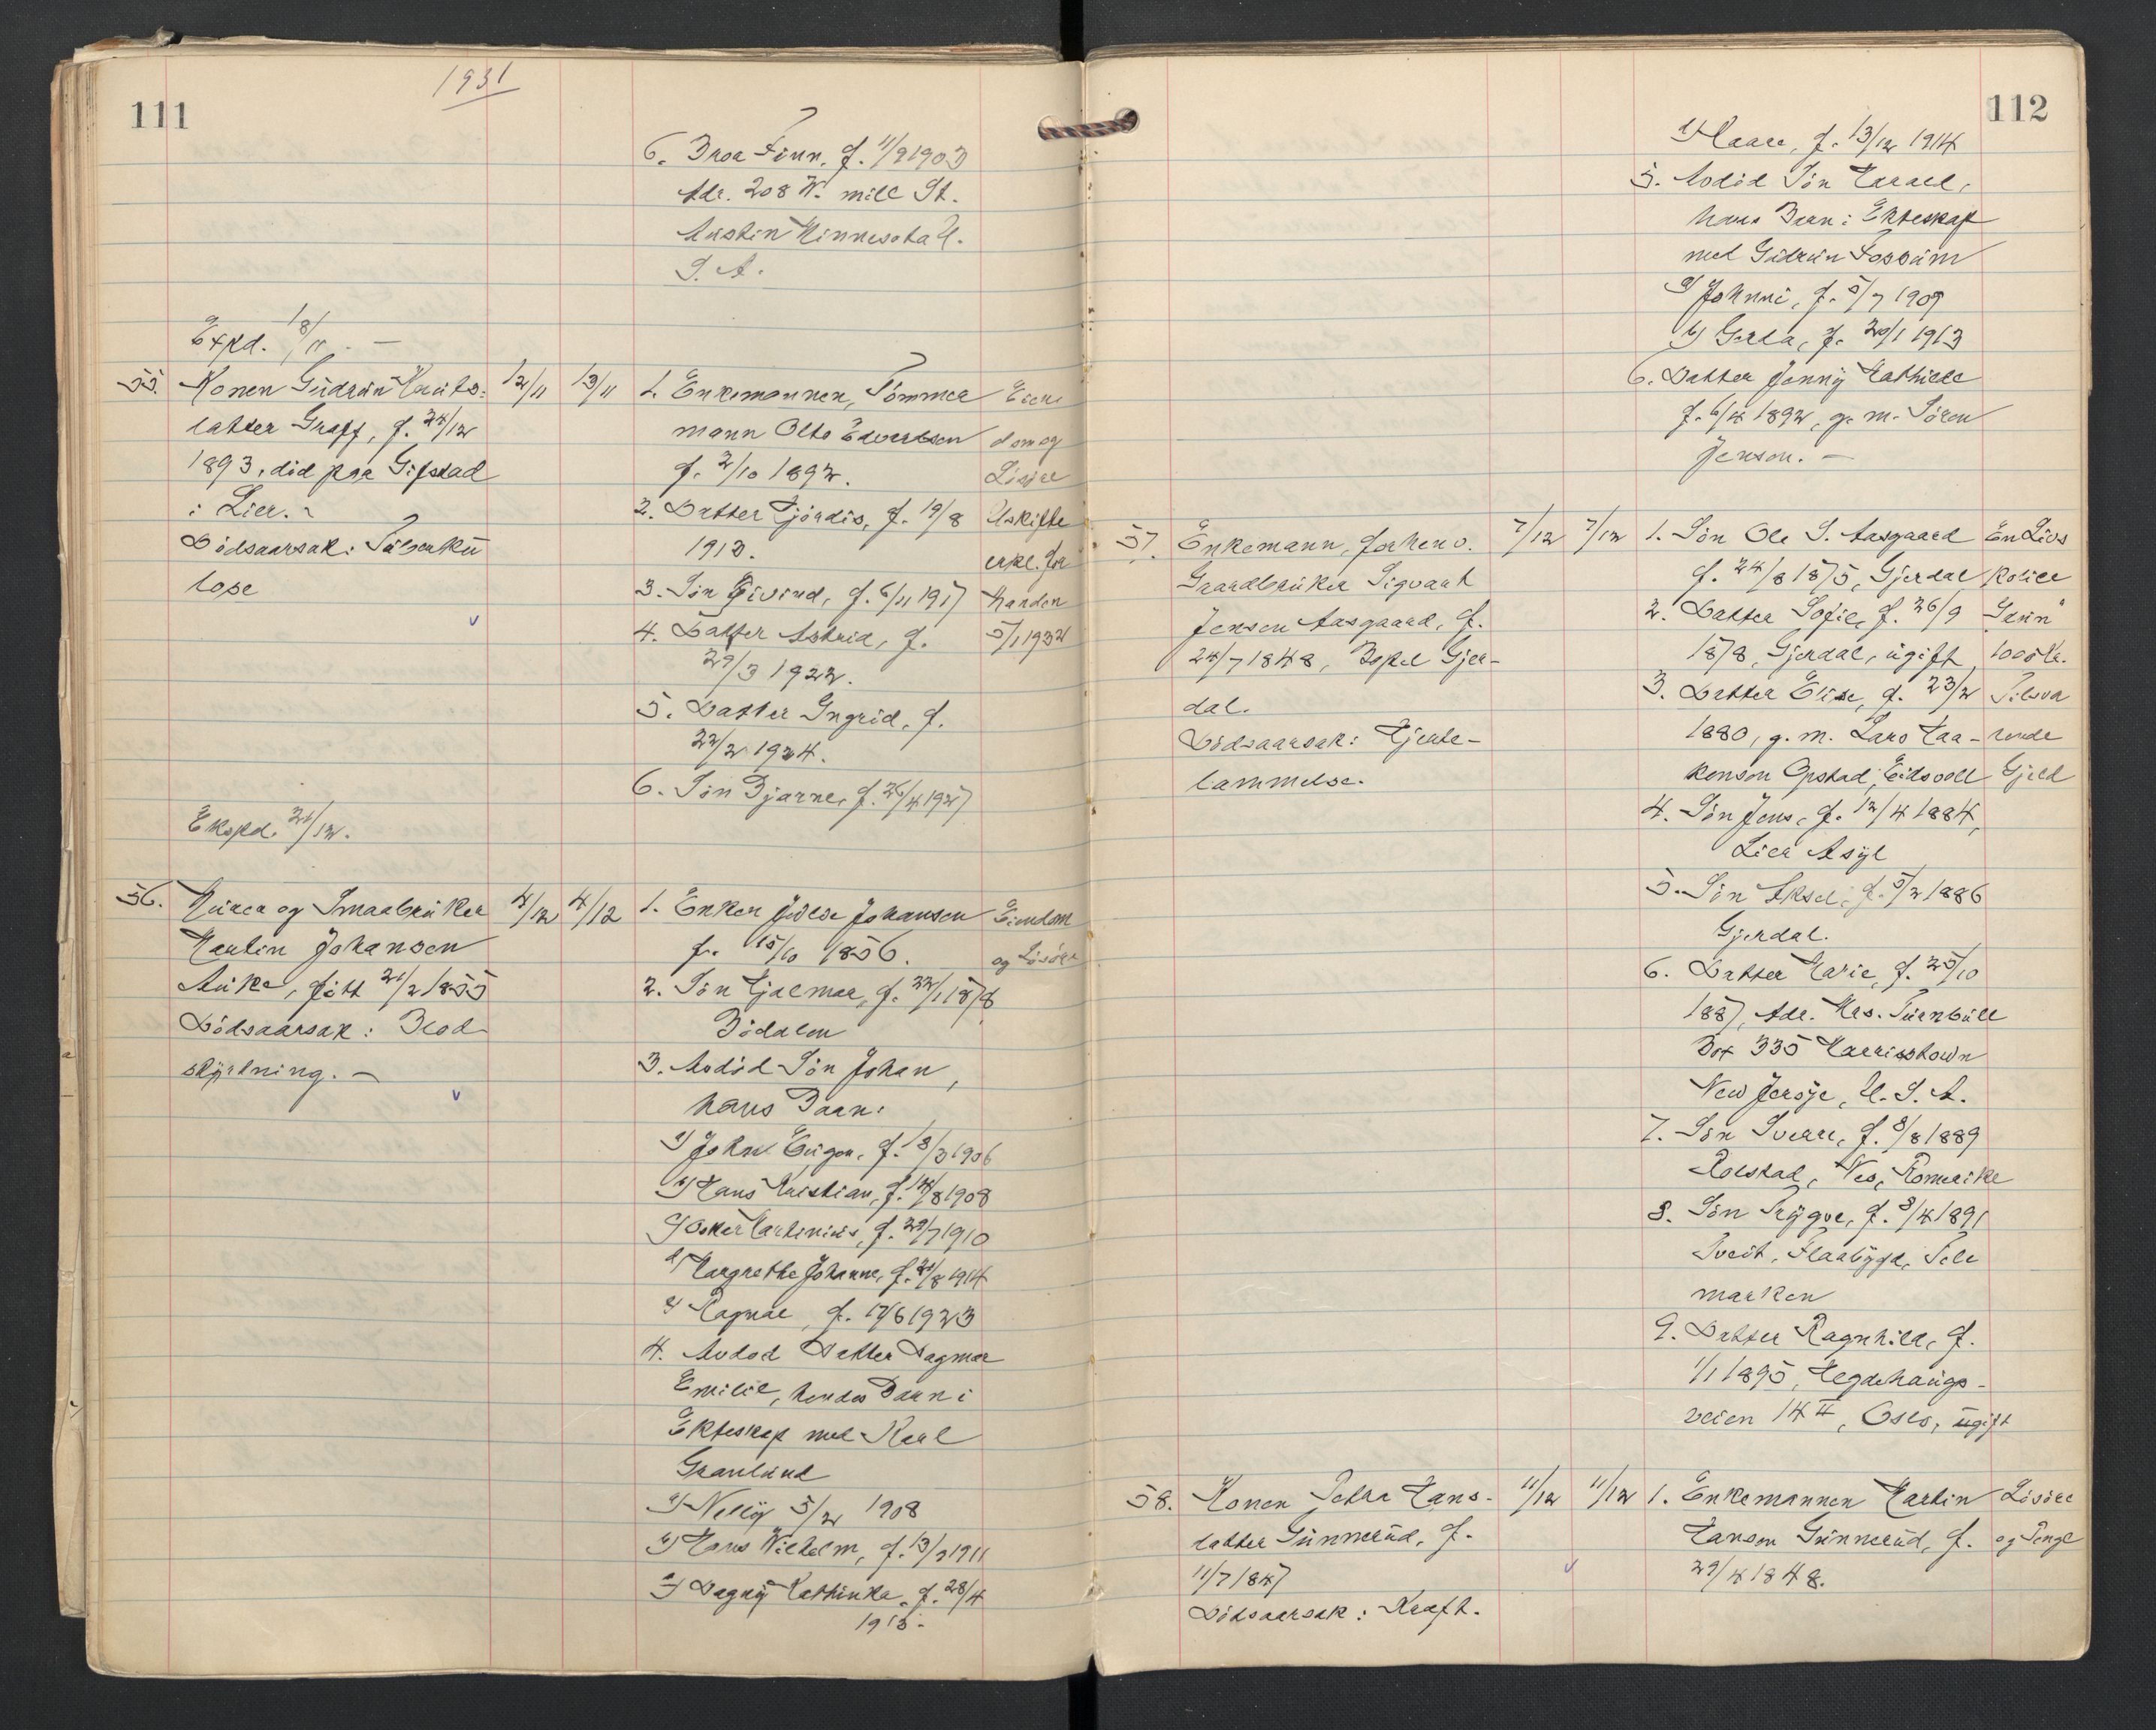 111
1931
6. Bror Finn, f. 11/9 1903
Adr. 208 W. mill St.
Austin Minnesota U.
S. A.
Expd. 18/11. —
55. Konen Gudrun Knuts-
datter Graff, f. 24/12
1893, död paa Gifstad
i Lier. -
Dödsaarsak: Tuberku
lose
12/11 13/11
1. Enkemannen, Tömmer
mann Otto Edvardsen
f. 2/10 1892.
2. Datter Hjördis, f. 19/8
1913.
3. Sön Eivind, f. 6/11 1917
4. Datter Astrid, f.
29/3 1922.
5. Datter Ingrid, f.
22/2 1924.
6. Sön Bjarne, f. 26/4 1927
Eien
dom og
Lösöre
Uskifte
erkl. fra
Randen
5/1 1932
Ekspd. 21/12.
56. Murer og Smaabruker
Martin Johansen
Auke, fött 21/2 1855
Dödsaarsak: Blod
styrtning. —
4/12 4/12
1. Enken Julie Johansen
f. 15/10 1856.
2. Sön Hjalmar, f. 22/1 1878
Bödalen
3. Avdöd Sön Johan,
hans Barn:
a) John Eugen, f. 18/3 1906
b) Hans Kristian, f. 14/8 1908
c) Oskar Martinius, f. 29/7 1910
d) Margrethe Johanne, f. 21/8 1914
e) Ragnar, f. 17/6 1923
4. Avdöd Datter Dagmar
Emilie, hendes Barn i
Ekteskap med Karl
Granlund
a) Nelly 5/2 1908
b) Hans Wilhelm, f. 13/2 1911
c) Dagny Kathinka, f. 28/4
1913.
Eiendom
og Lösöre
112
d) Kaare, f. 13/12 1914
5. Avdöd Sön Harald,
hans Barn i Ekteskap
med Gudrun Fossum
a) Johnni, f. 5/7 1909
b) Gerda, f. 20/1 1913
6. Datter Jenny Mathilde
f. 6/4 1892, g. m. Sören
Jenson. —
57. Enkemann, forhenv.
Gaardbruker Sigvart
Jensen Aasgaard, f.
24/7 1848, Bopel Gjer-
dal.
Dödsaarsak: Hjerte-
lammelse.
7/12 7/12
1. Sön Ole S. Aasgaard
f. 24/8 1875, Gjerdal
2. Datter Sofie, f. 26/9
1878, Gjerdal, ugift
3. Datter Elise, f. 23/2
1880, g. m. Lars Haa-
kenson Opstad, Eidsvoll
4. Sön Jens, f. 12/4 1884,
Lier Asyl
5. Sön Aksel, f. 5/2 1886
Gjerdal.
6. Datter Marie, f. 25/10
1887, Adr. Mrs. Turnbull
Box 335 Marristown
New Jersye, U. S. A.
7. Sön Sverre, f. 8/8 1889
Rolstad, Nes, Romerike
8. Sön Trygve, f. 8/4 1891
Tveit, Flaabygd, Tele
marken
9. Datter Ragnhild, f.
1/1 1895, Hegdehaugs-
veien 14 II, Oslo, ugift
En Livs
police
"Idun"
1000 Kr.
Tilsva
rende
Gjeld
58. Konen Petra Hans-
datter Gunnerud, f.
11/7 1847
Dödsaarsak: Kræft.
11/12 11/12
1. Enkemannen Martin
Hanson Gunnerud, f.
29/4 1848.
Lösöre
og Penge